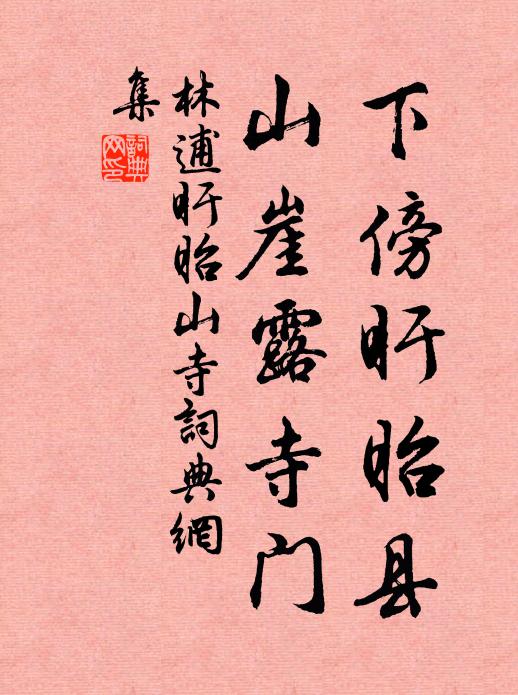 下傍盱眙县
山崖露寺门
林逋盱眙山寺詞典網
集
詞典
网印